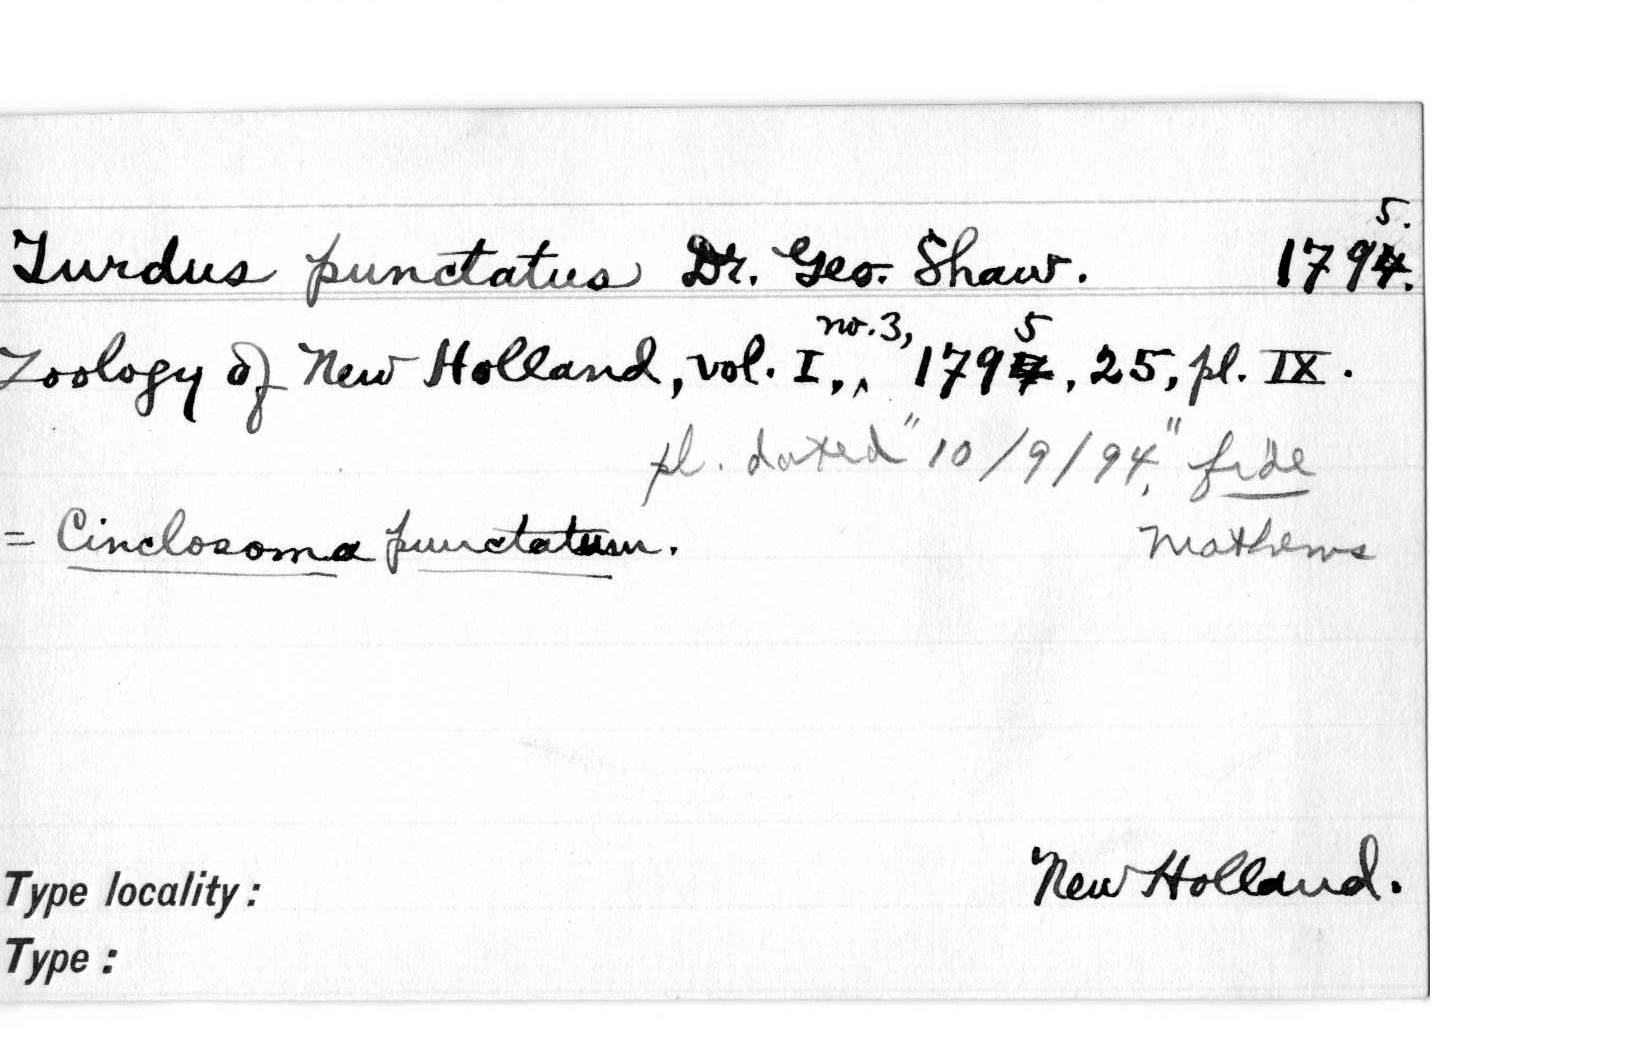 Turdus punctatus Dr. Geo. Shaw. 1794. 5.
Zoology of New Holland, vol. I, ‸ no. 3, 1794 5, 25, pl. IX.
pl. dated "10/9/94," fide
Mathews
= Cinclosoma punctatum.
New Holland.
Type locality:
Type: